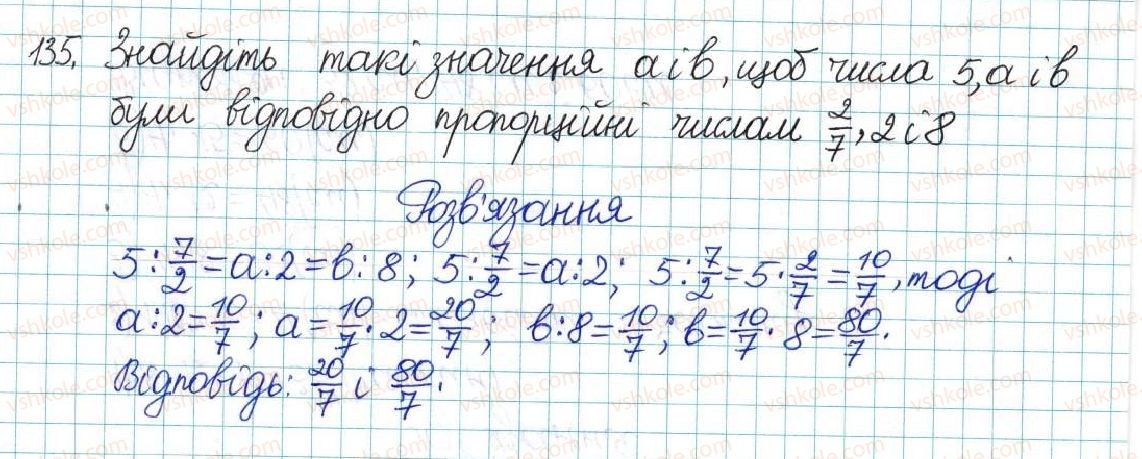 135. Знайдіть такі значення a і b, щоб числа 5, a і b
були відповідно пропорційні числам 2/7, 2 і 8
Розв'язання
5 : 7/2 = a : 2 = b : 8; 5 : 7/2 = a : 2; 5 : 7/2 = 5 · 2/7 = 10/7, тоді
a : 2 = 10/7; a = 10/7 · 2 = 20/7; b : 8 = 10/7; b = 10/7 · 8 = 80/7.
Відповідь: 20/7 і 80/7.